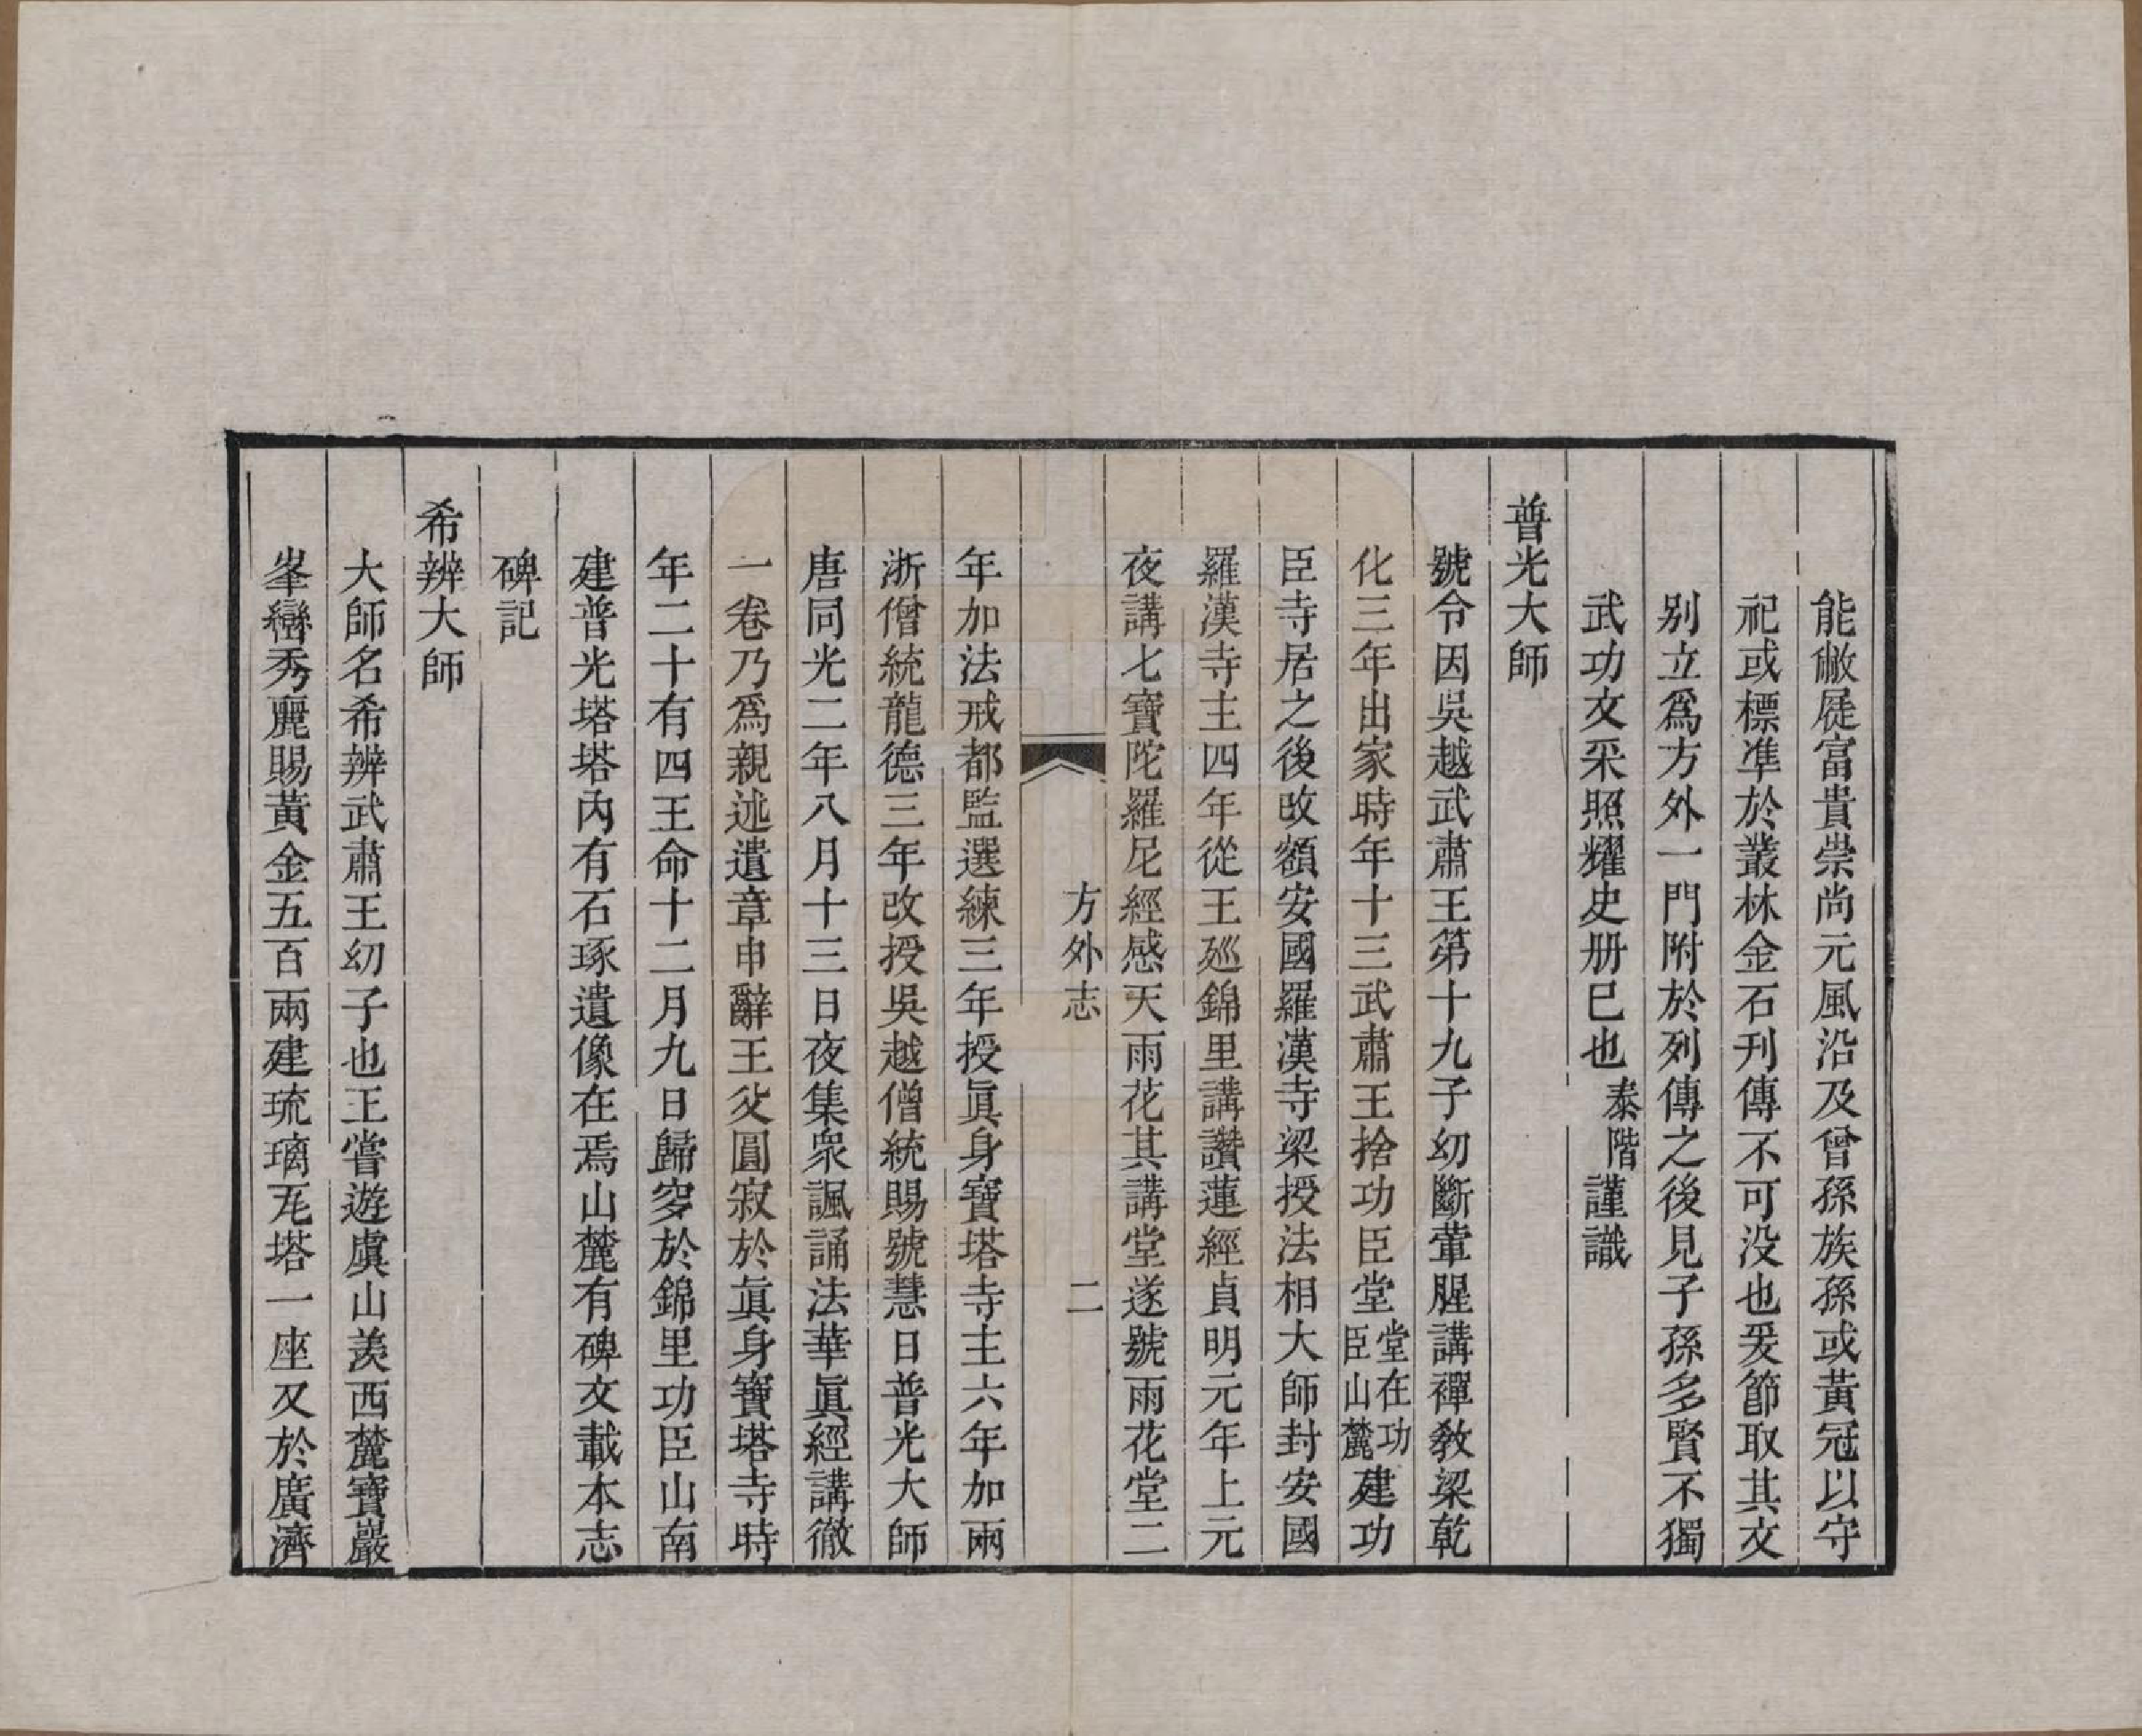 能敝屣富貴崇尚元風沿及曾孫族孫或黃冠以守
祀或標凖於叢林金石刊傳不可没也爰節取其文
别立爲方外一門附於列傳之後見子孫多賢不獨
武功文采照耀史册已也泰階謹識
普光大師
號令因吳越武肅王第十九子幼斷葷腥講禪敎梁乾
化三年出家時年十三武肅王捨功臣堂堂在功臣山麓建功
臣寺居之後改額安國羅漢寺梁授法相大師封安國
羅漢寺主四年從王廵錦里講讚蓮經貞明元年上元
夜講七寶陀羅尼經感天雨花其講堂遂號雨花堂二
方外志
二
年加法戒都監選練三年授眞身寶塔寺主六年加兩
浙僧統龍德三年改授吳越僧統賜號慧日普光大師
唐同光二年八月十三日夜集衆諷誦法華眞經講徹
一卷乃爲親述遺章申辭王父圓寂於眞身寶塔寺時
年二十有四王命十二月九日歸窆於錦里功臣山南
建普光塔塔內有石琢遺像在焉山麓有碑文載本志
碑記
希辨大師
大師名希辨武肅王幼子也王嘗遊虞山羨西麓寶巖
峯巒秀麗賜黃金五百兩建琉璃瓦塔一座又於廣濟